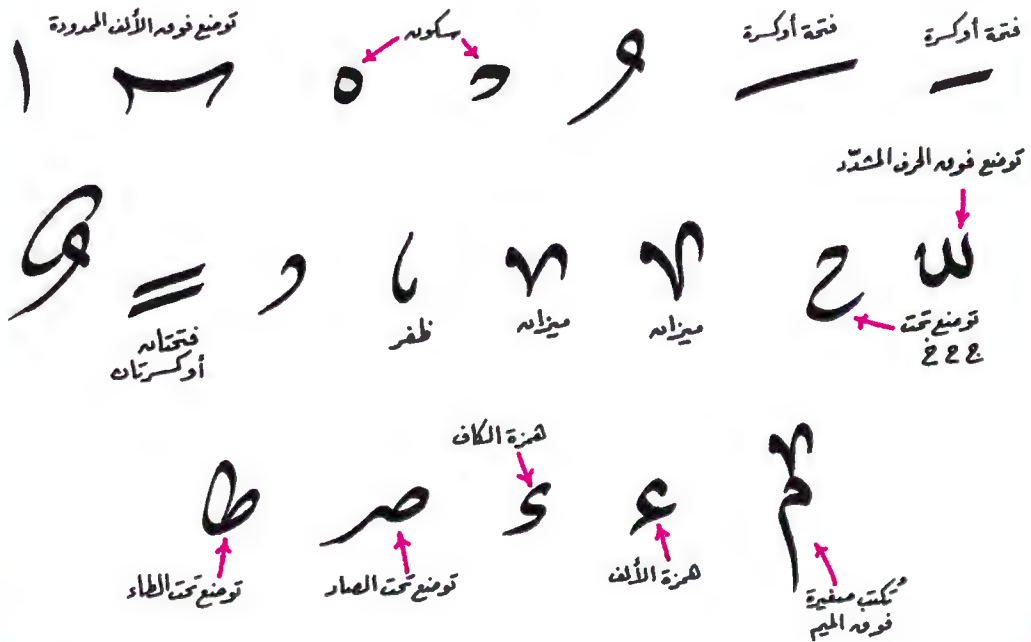 فتحة أوكسرة
فتحة أوكسرة
سكون
توضع فوق الألف الممدودة
توضع فوق الحرف المشدّد
توضع تحت
ج ح خ
ميزان
ميزان
ظفر
فتحتان
أوكسرتان
همزة الكاف
تُكتب صغيرة
فوق الميم
همزة الألف
توضع تحت الصاد
توضع تحت الطاء